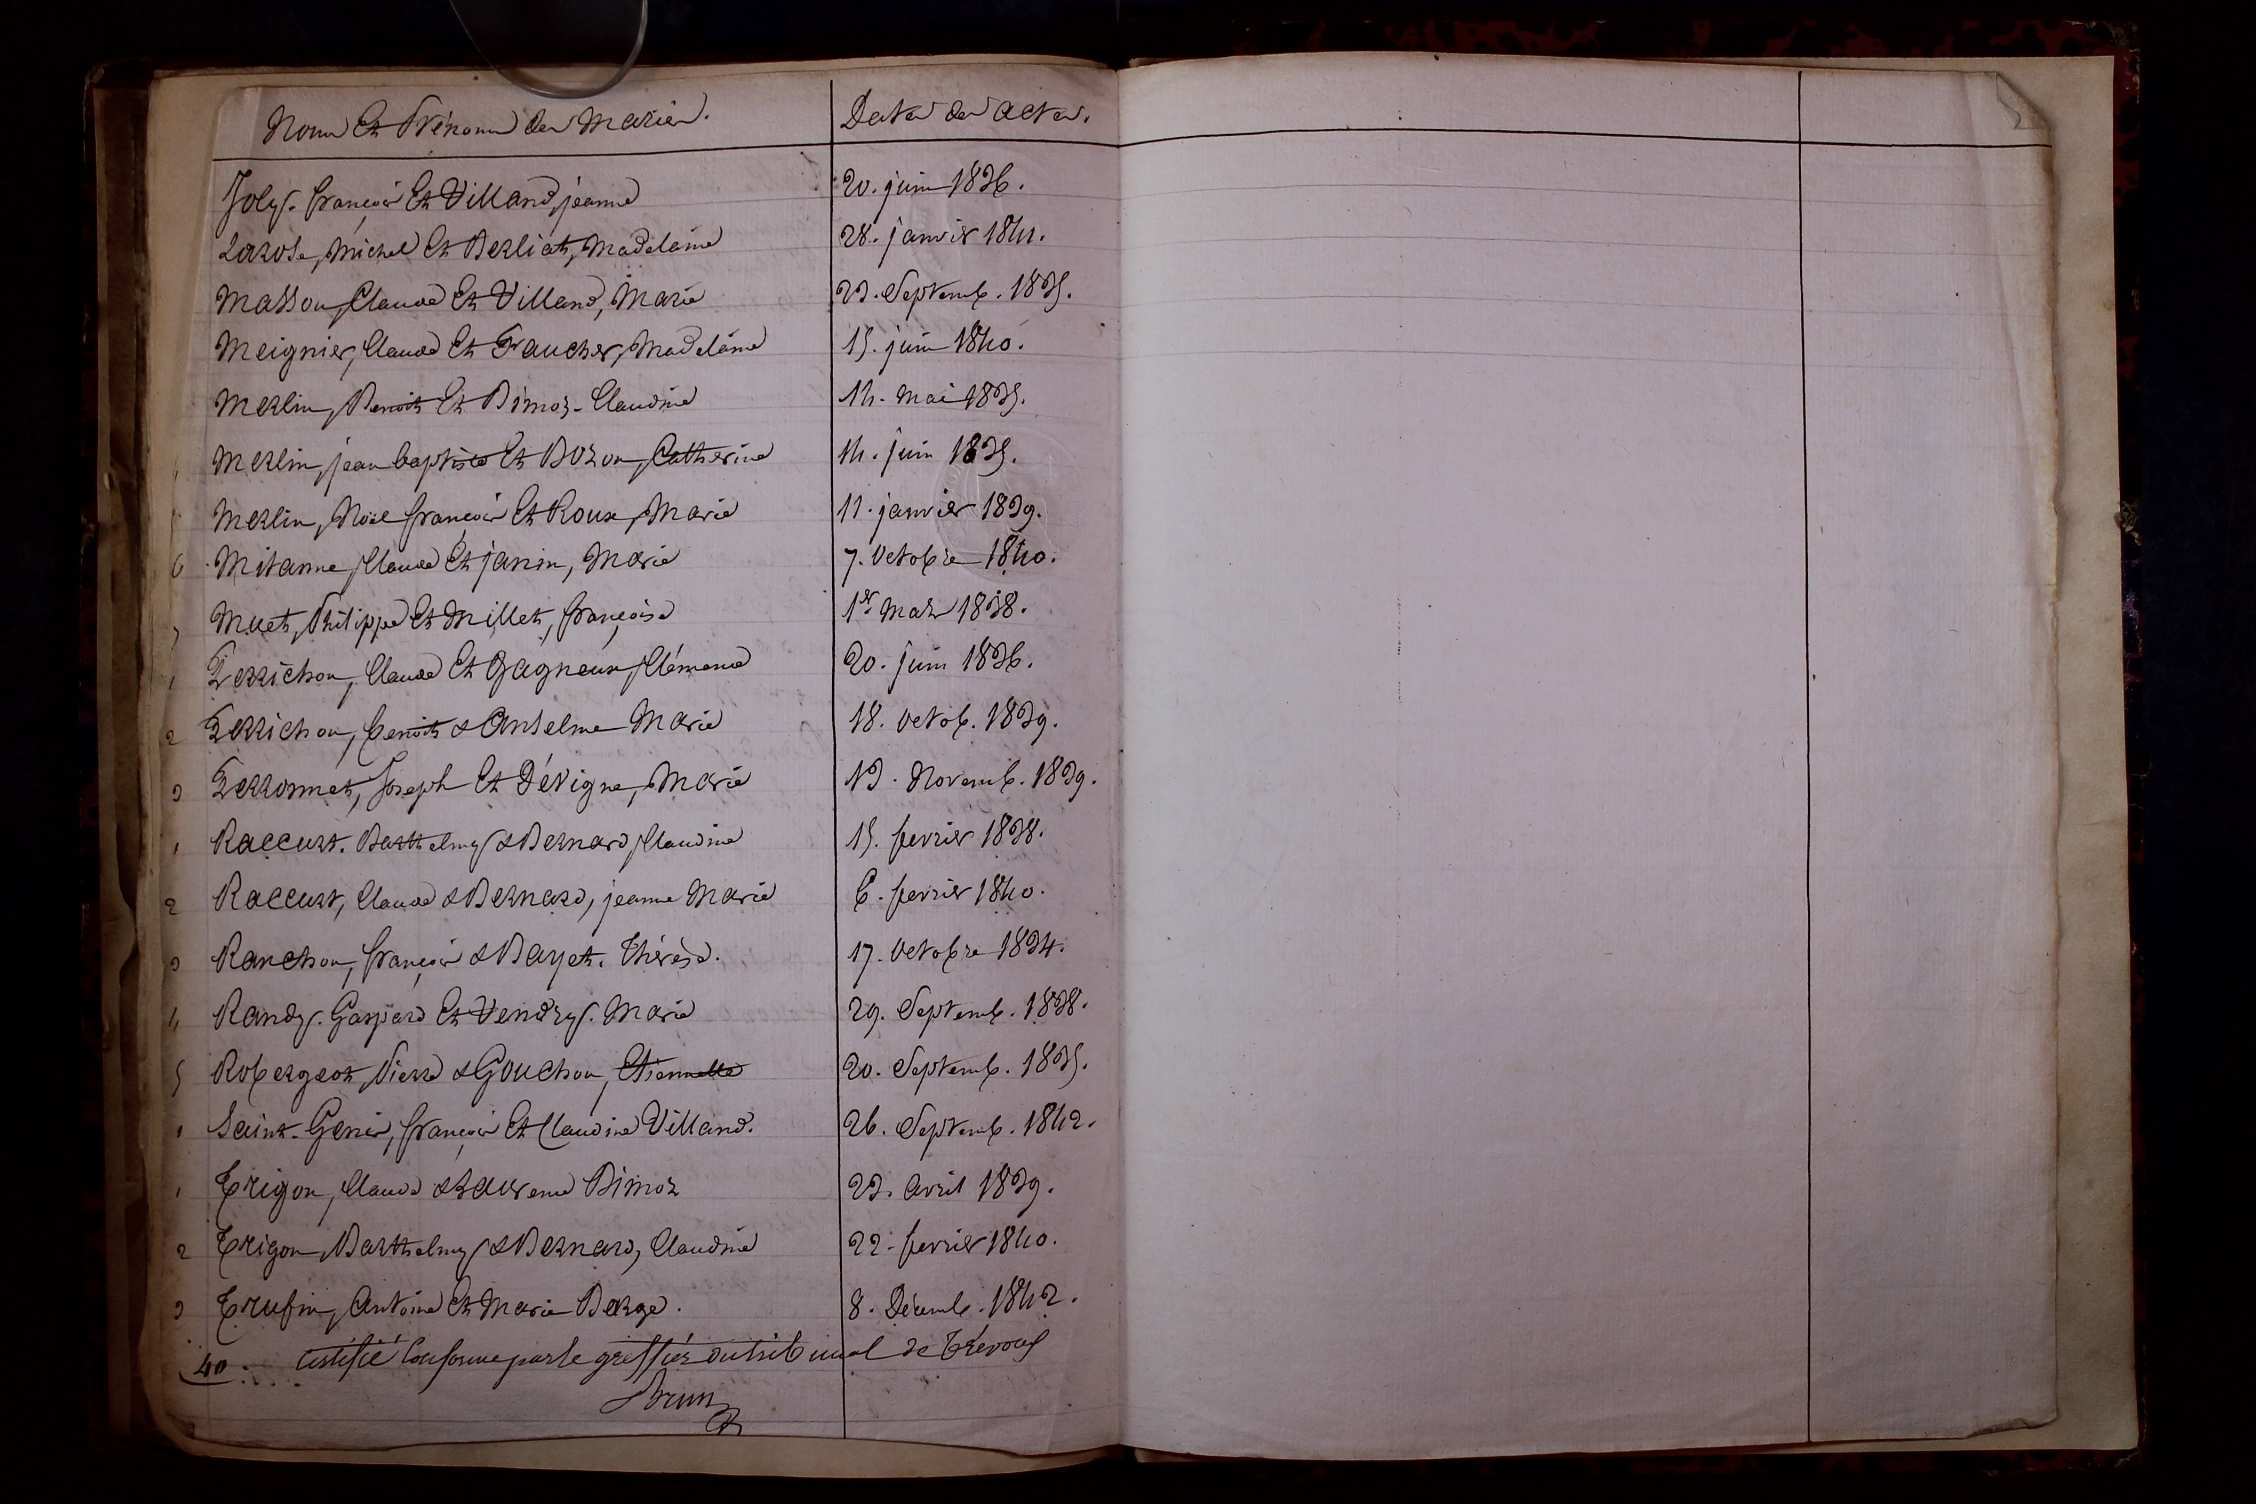 Noms Et Prénoms des Mariés. Dates des actes.
Joly. françois Et Villand, jeanne 20. juin 1836.
Larose, Michel Et Berliat, Madelaine 28. janvier 1841.
Masson, Claude Et Villand, Marie 23. Septemb. 1835.
Meignier, Claude Et Faucher, Madelaine 15. juin 1840.
Merlin, Benoit Et Bimoz. Claudine 14. Mai 1835.
Merlin, jean baptiste Et Bozon, Catherine 14. juin 1835.
Merlin, Noël françois Et Roux, Marie 11. janvier 1839.
6 Mitanne, Claude Et janin, Marie 7. Octobre 1840.
7 Muet, Philippe Et Millet, françoise 1er Mars 1838.
1 Perrichon, Claude Et Gagneux, Clémence 20. juin 1836.
2 Perrichon, benoit & Anselme Marie 18. Octob. 1839.
3 Perronnet, Joseph Et Dévigne, Marie 13. Novemb. 1839.
1 Raccurt. Barthelmy & Bernard, Claudine 15. fevrier 1838.
2 Raccurt, Claude & Bernard, jeanne Marie 6. fevrier 1840.
3 Ranchon, françois & Bayet. Thérèse. 17. Octobre 1834.
4 Randy. Gaspard Et Vendry. Marie 29. Septemb. 1838.
5 Robergeot, Pierre & Gouchon, Etiennette 20. Septemb. 1835.
1 Saint-Genis, françois Et Claudine Villand. 26. Septemb. 1842.
1 Trigon, Claude & Laurence Bimoz 23. Avril 1839.
2 Trigon, Barthelmy & Bernard, Claudine 22. fevrier 1840.
3 Trufin, Antoine Et Marie Barge. 8. Décemb. 1842.
40. Certifié Conforme par le greffier du tribunal de Trévoux
Brun